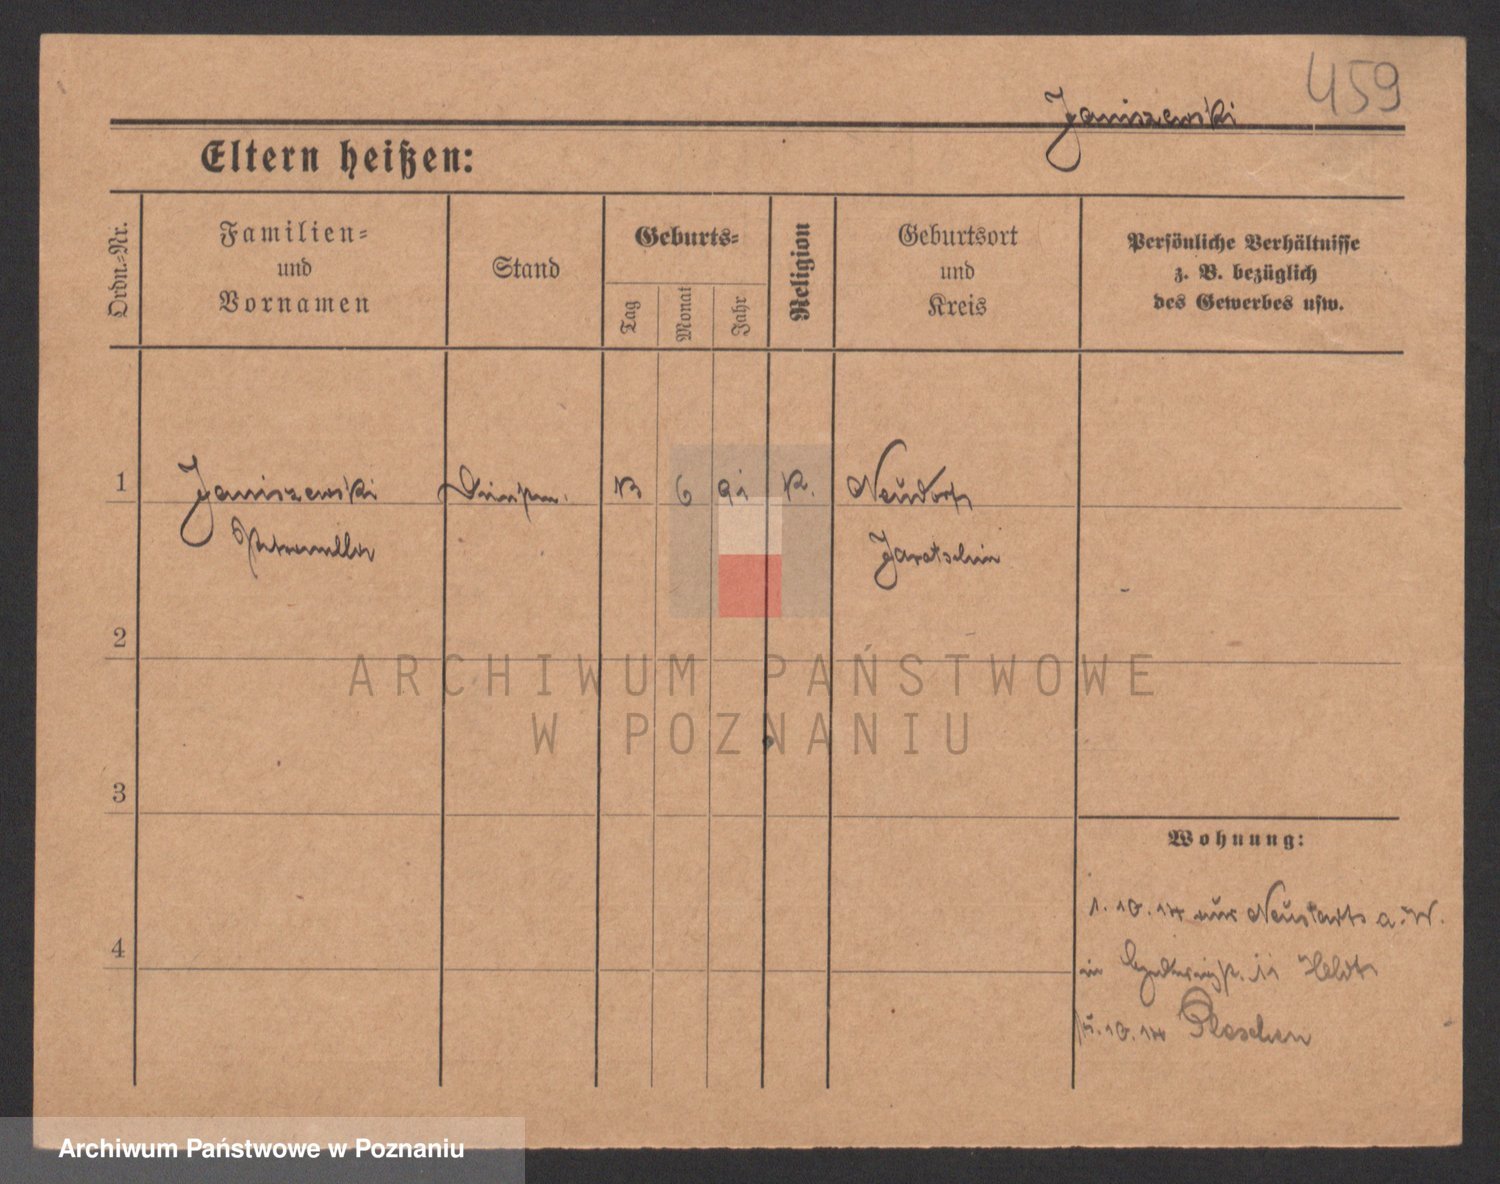 459
Janiszewski
Eltern heißen:
Ordn.-Nr.
Familien-
und
Vornamen
Stand
Geburts-
Tag
Monat
Jahr
Religion
Geburtsort
und
Kreis
Persönliche Verhältnisse
z. B. bezüglich
des Gewerbes usw.
1
Janiszewski
6
K.
Neudorf
Petronella
Jarotschin
2
ARCHIWUM PAŃSTWOWE
W POZNANIU
3
Wohnung:
1.10.14 aus Neustadt a. W.
4
in
10.14 Pleschen
Archiwum Państwowe w Poznaniu